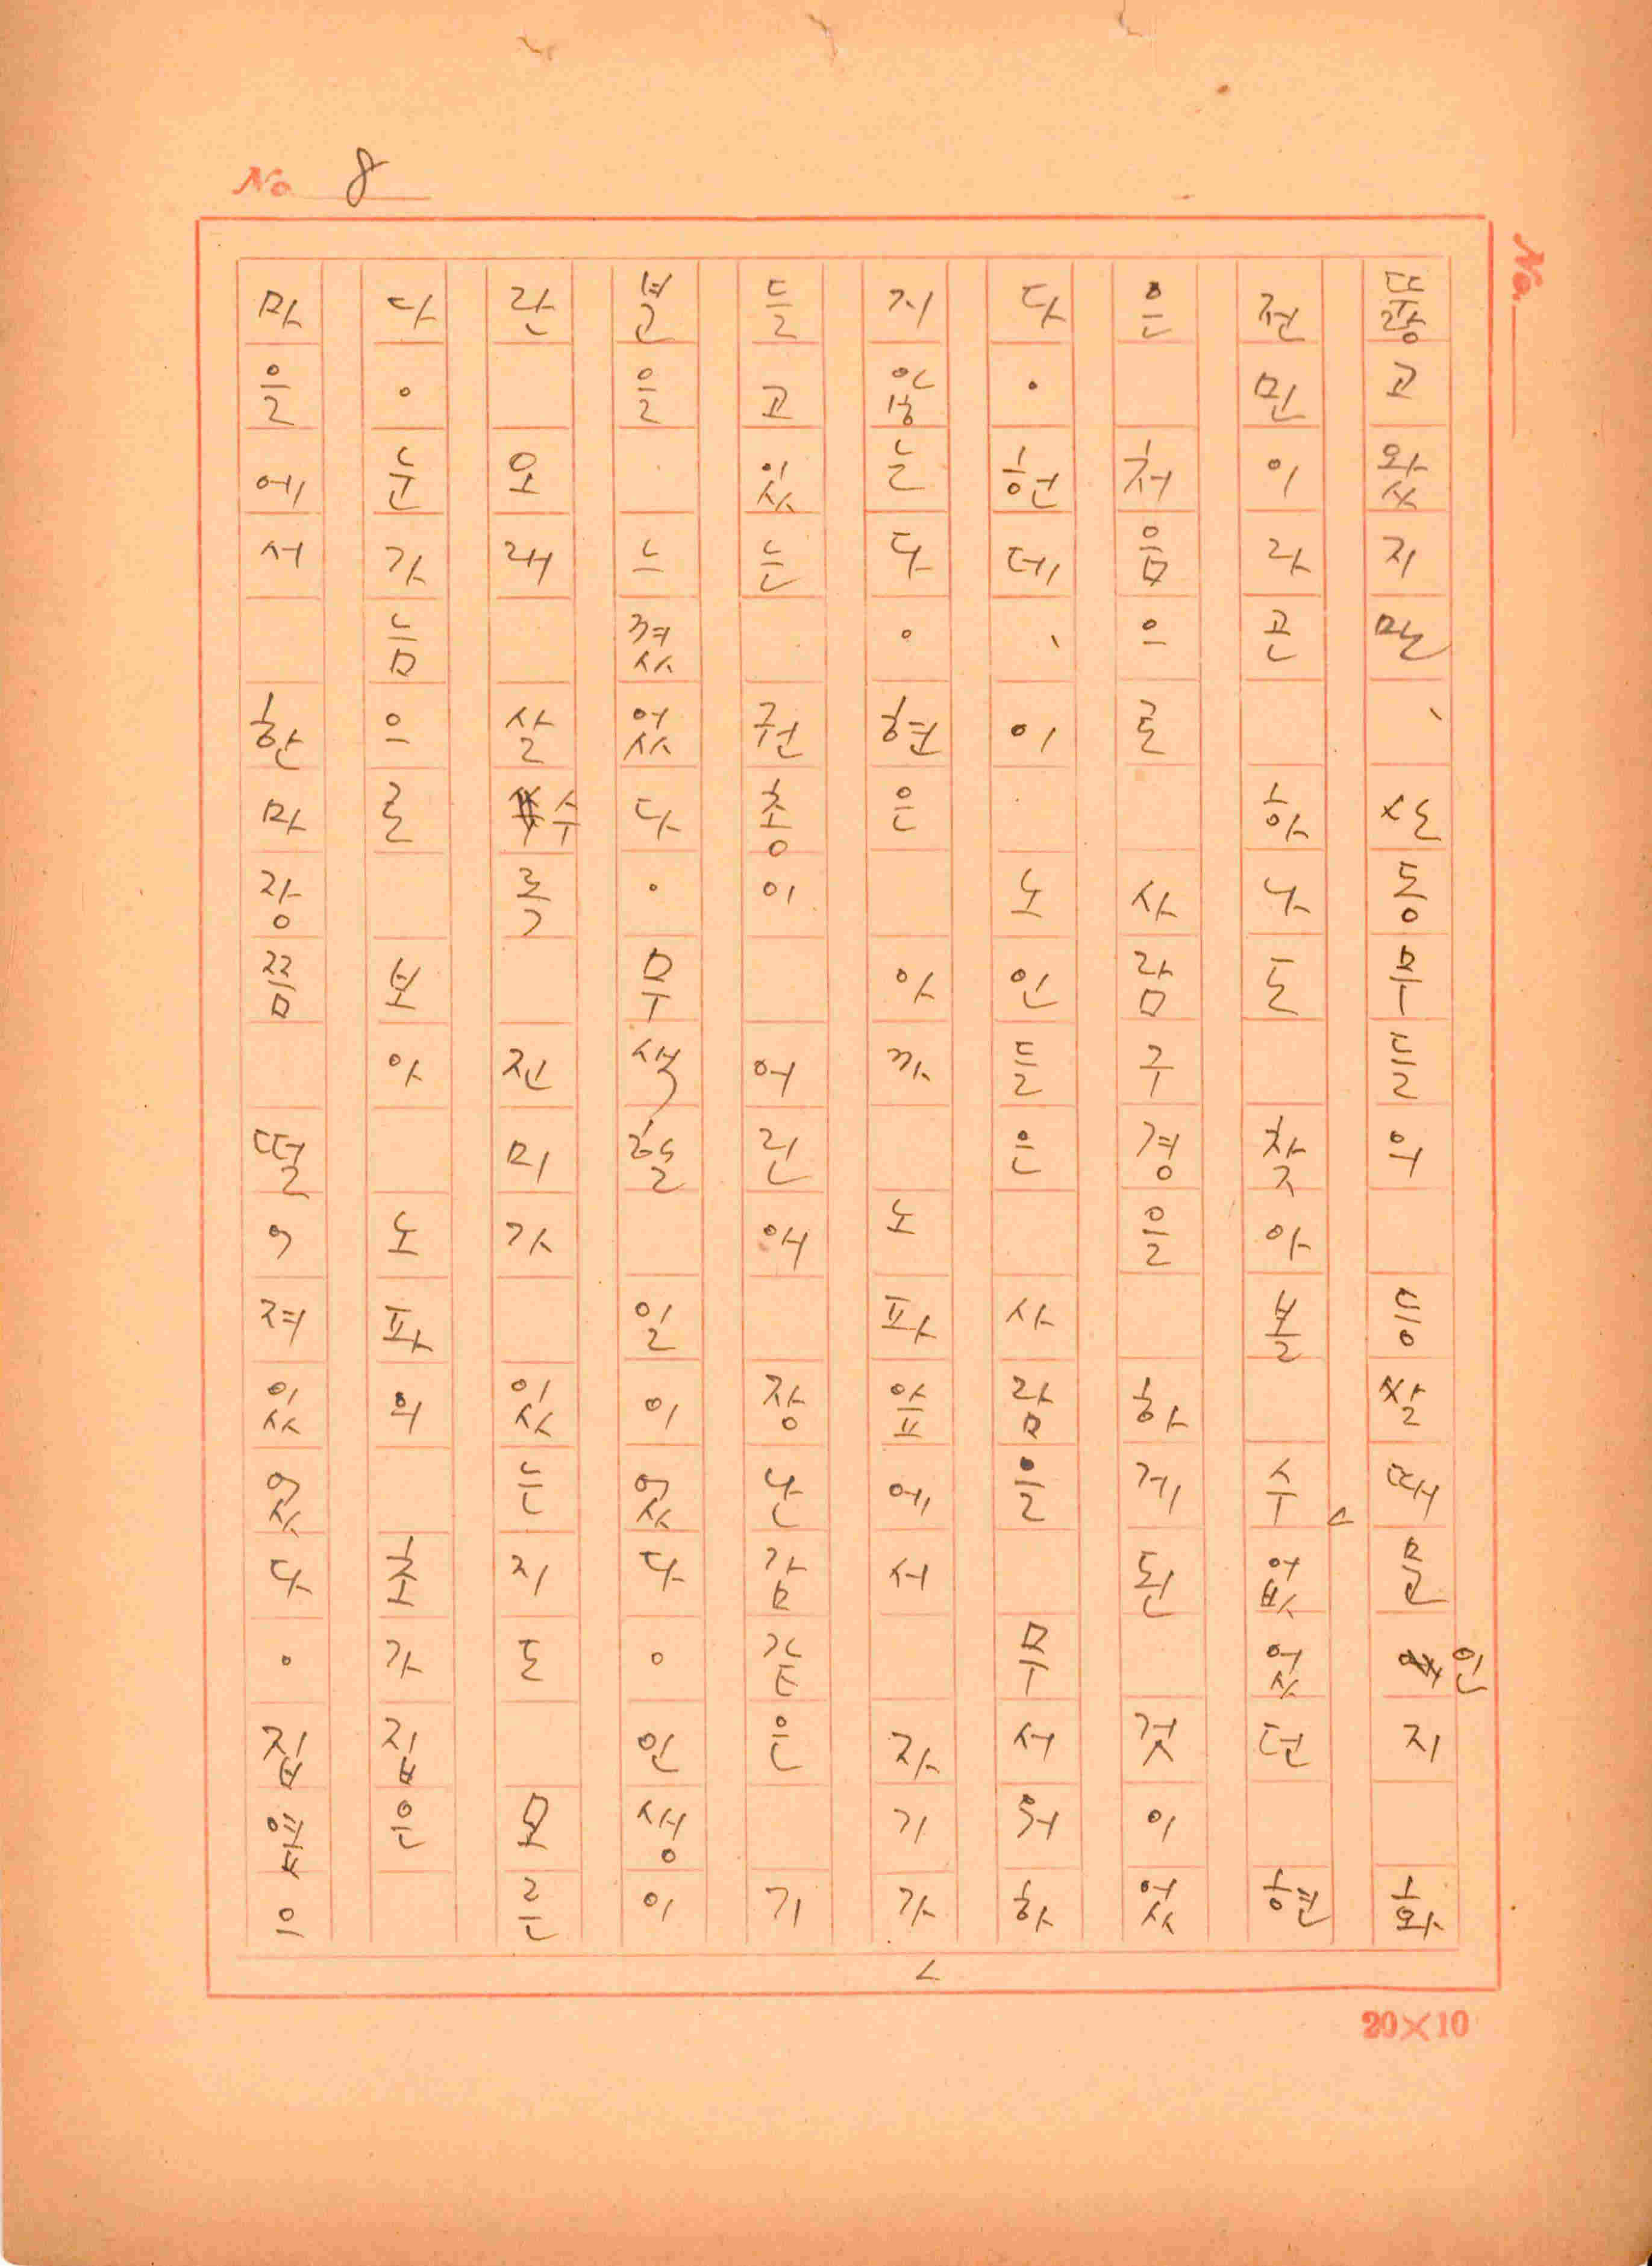 No 8
No.
뚫고 왔지만, 싼동무들의 등쌀때문인지 화
전민이라곤 하나도 찾아볼 수 없었던 현
은 처음으로 사람구경을 하게된 것이었
다. 헌데, 이 노인들은 사람을 무서워하
지않는다. 현은 아까 노파앞에서 자기가
들고있는 권총이 어린애 장난감같은 기
분을 느꼈었다. 무색할 일이었다. 인생이
란 오래 살수록 진미가 있는지도 모른
다. 눈가늠으로 보아 노파의 초가집은
마을에서 한마장쯤 떨어져있었다. 집앞으
20×10